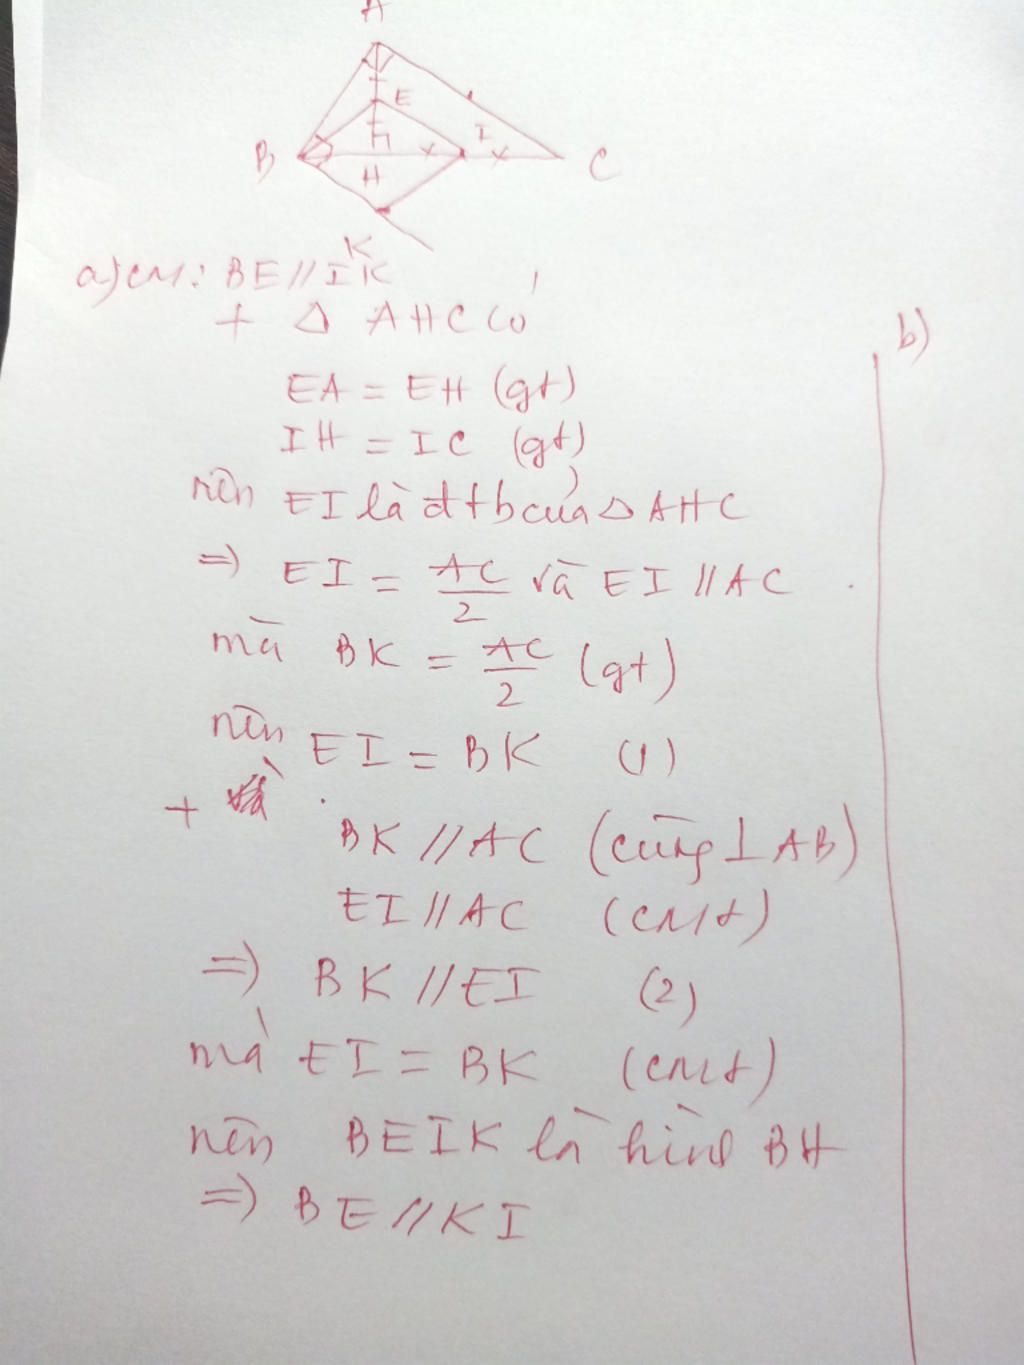 A
E
I
B
C
H
K
a) CM: BE // IK
+ Δ AHC có
EA = EH (gt)
IH = IC (gt)
nên EI là đtb của Δ AHC
=> EI = AC/2 và EI // AC
mà BK = AC/2 (gt)
nên EI = BK (1)
+
BK // AC (cùng ⊥ AB)
EI // AC (cmt)
=> BK // EI (2)
mà EI = BK (cmt)
nên BEIK là hình BH
=> BE // KI
b)